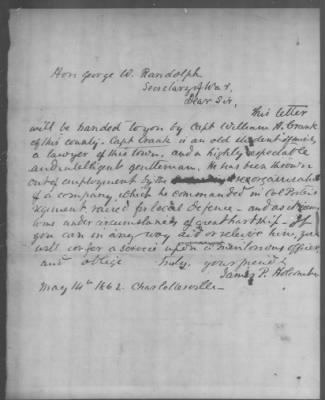 Hon George W. Randolph
Secretary of War,
Dear Sir,
This letter
will be handed to you by Capt William H. Crank
of this county. Capt Crank is an old student of mine,
a lawyer of this town, and a highly respectable
and intelligent gentleman. He has been thrown
out of employment by the reorganization
of a company which he commanded in Col
regiment raised for local defence - and as
was under circumstances of great hardship - If
you can in any way aid or relieve him, you
will confer a service upon a meritorious officer,
and oblige truly, your friend
James P. Holcombe
May 14th 1862. Charlottesville -